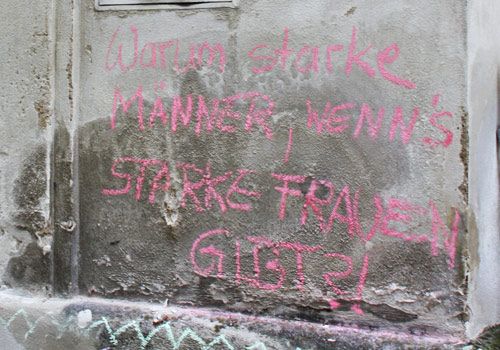 Warum starke
MÄNNER, WENN'S
STARKE FRAUEN
GIBT?!